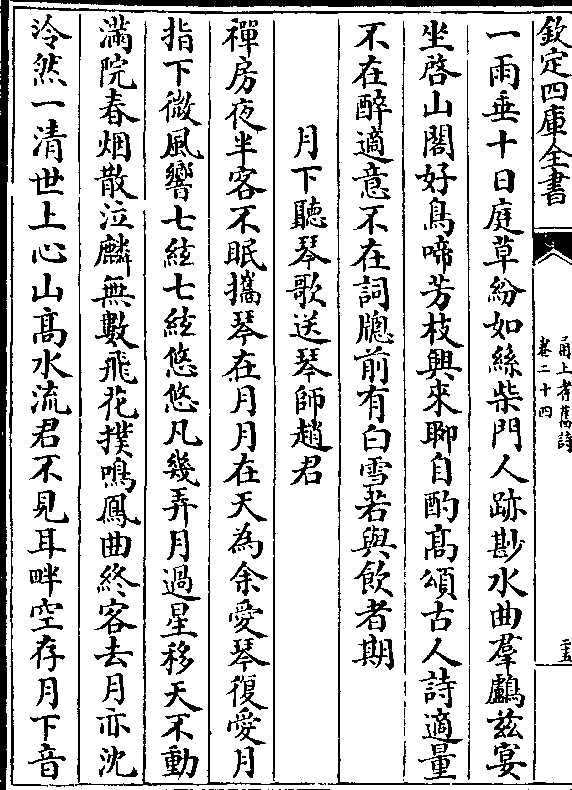 欽定四庫全書
甬上耆舊詩
卷二十四
二五
一雨垂十日庭草紛如絲柴門人跡尠水曲羣鸕兹宴
坐啓山閣好鳥啼芳枝興來聊自酌髙頌古人詩適量
不在醉適意不在詞牕前有白雪若與飲者期
月下聽琴歌送琴師趙君
禪房夜半客不眠攜琴在月月在天為余愛琴復愛月
指下微風響七絃七絃悠悠凡幾弄月過星移天不動
滿院春烟散泣麟無數飛花撲鳴鳳曲終客去月亦沈
泠然一清世上心山髙水流君不見耳畔空存月下音